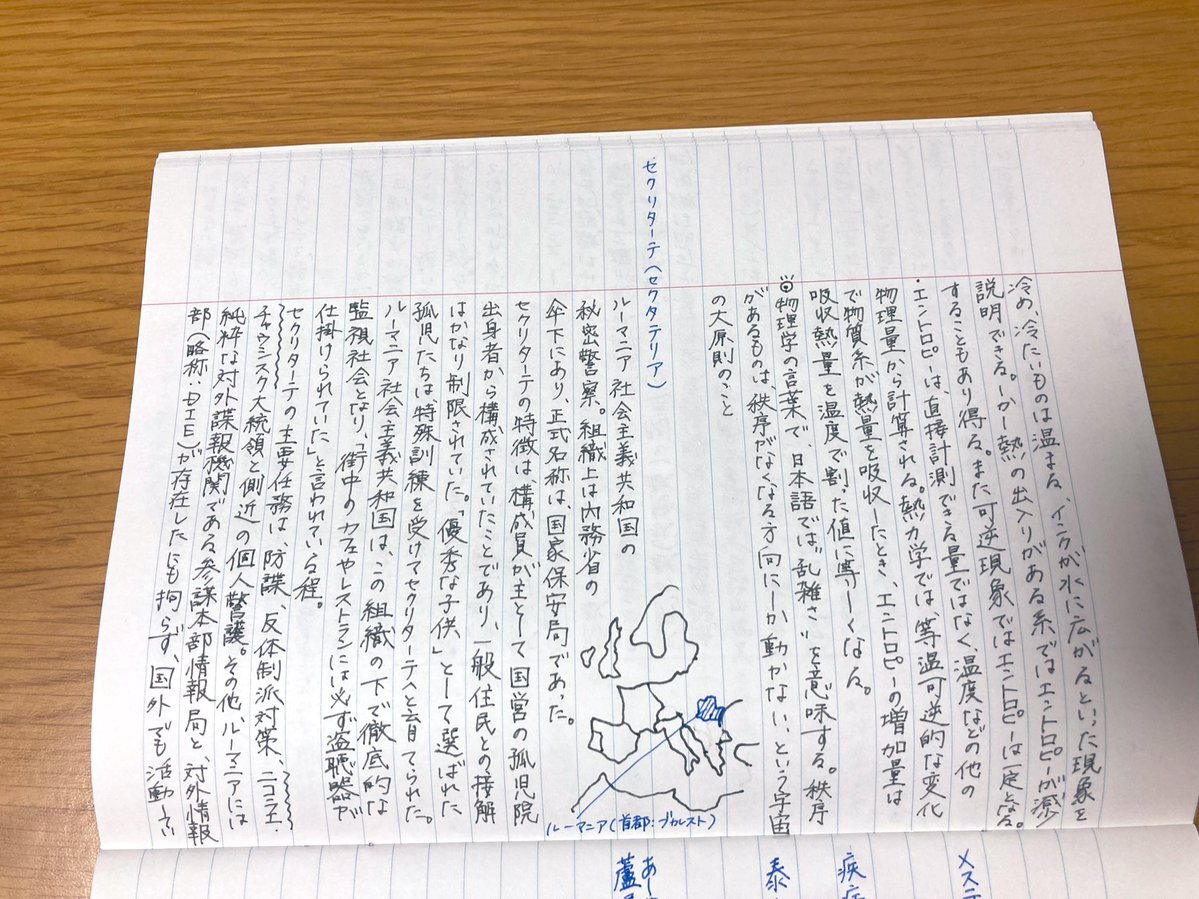 冷め、冷たいものは温まる、インクが水に広がるといった現象を
説明できる。しかし熱の出入りがある系ではエントロピーが減少
することもあり得る。また可逆現象ではエントロピーは一定となる。
・エントロピーは、直接計測できる量ではなく、温度などの他の
物理量から計算される。熱力学では、等温可逆的な変化
で物質系が熱量を吸収したとき、エントロピーの増加量は
吸収熱量を温度で割った値に等しくなる。
物理学の言葉で、日本語では"乱雑さ"を意味する。秩序
があるものは、秩序がなくなる方向にしか動かない、という宇宙
の大原則のこと
セクリターテ(セクタテリア)
ルーマニア社会主義共和国の
秘密警察。組織上は内務省の
傘下にあり、正式名称は、国家保安局であった。
セクリターテの特徴は、構成員が主として国営の孤児院
出身者から構成されていたことであり、一般住民との接解
はかなり制限されていた。「優秀な子供」として選ばれた
孤児たちは、特殊訓練を受けてセクリターテへと育てられた。
ルーマニア社会主義共和国は、この組織の下で徹底的な
監視社会となり、「街中のカフェやレストランには必ず盗聴器が
仕掛けられていた」と言われている程。
セクリターテの主要任務は、防諜、反体制派対策、ニコラエ・
チャウシスク大統領と側近の個人警護。その他、ルーマニアには
純粋な対外諜報機関である参謀本部情報局と、対外情報
部(略称:DIE)が存在したにも拘らず、国外でも活動してい
ルーマニア(首都:ブカレスト)
メステ
疾
泰
あし
蘆